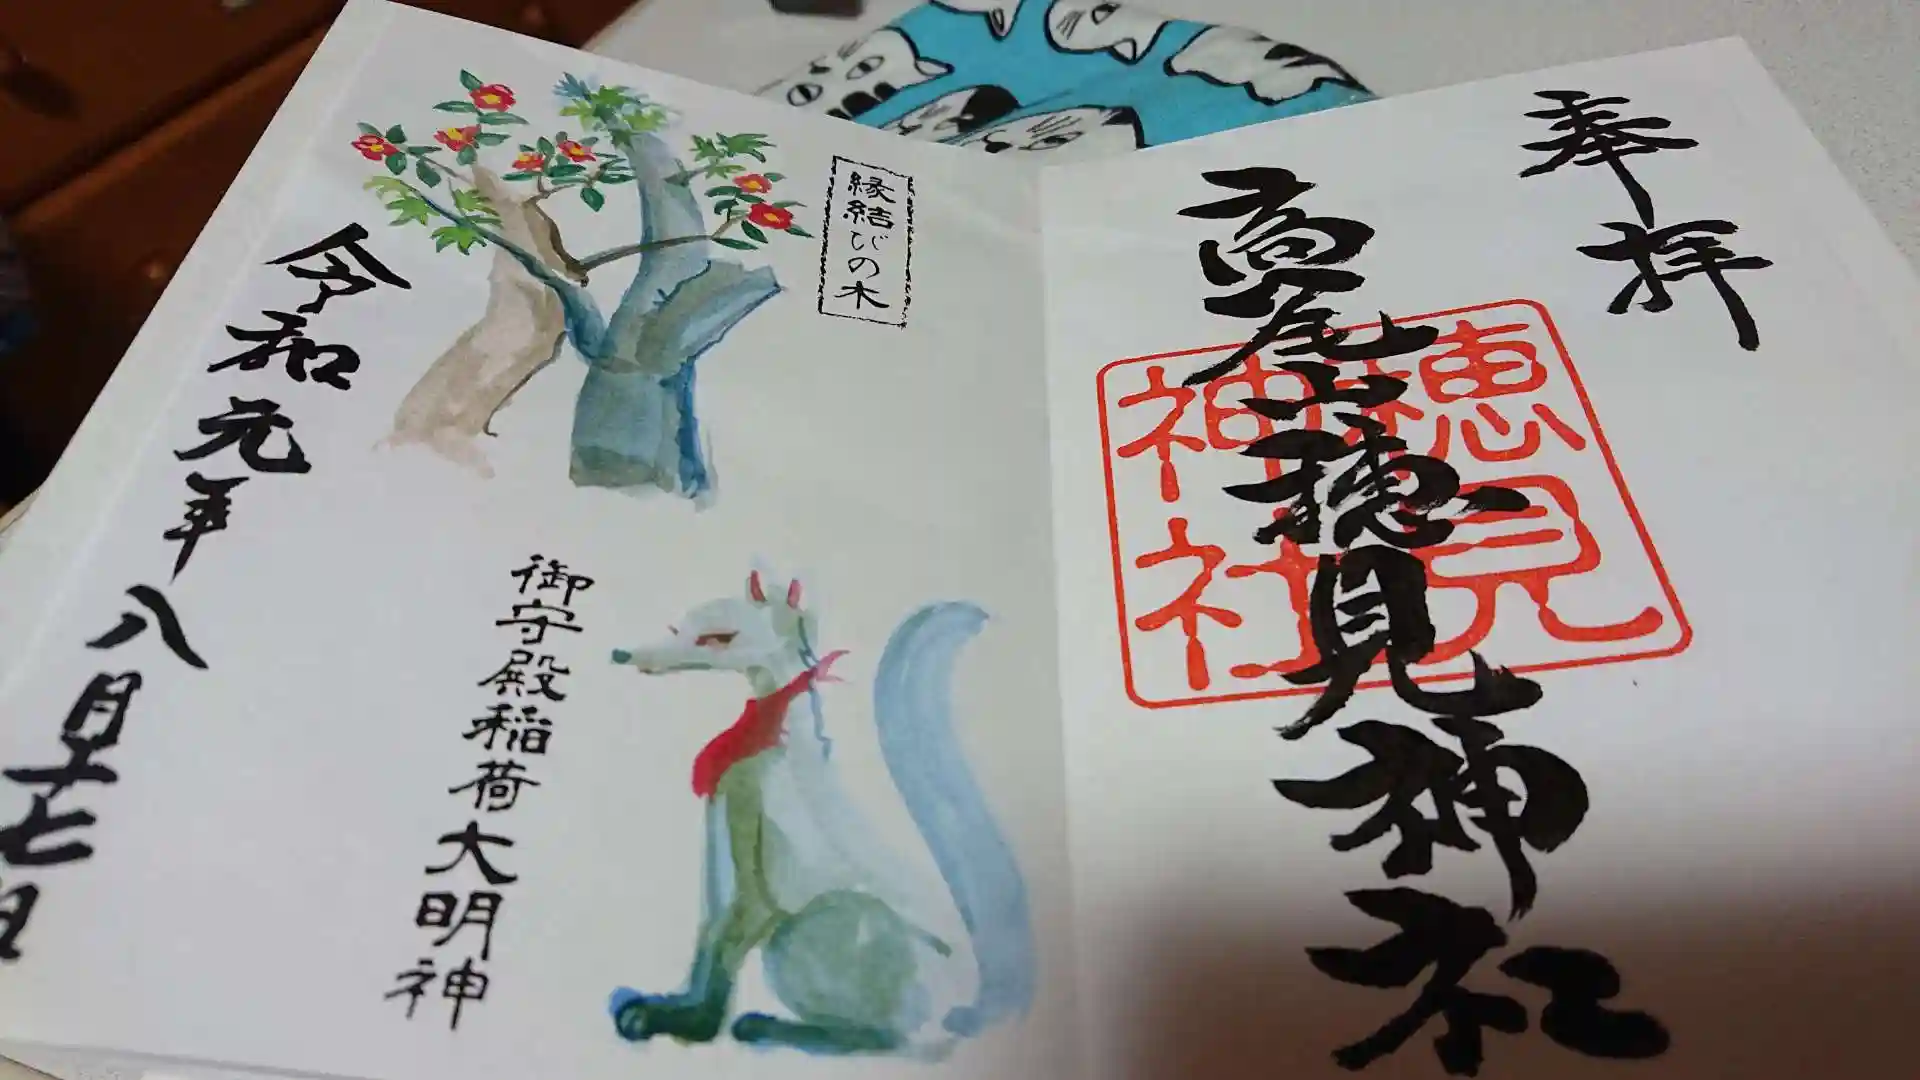 奉拝
高尾山穂見神社
穂見
神社
縁結びの木
御守殿稲荷大明神
令和元年八月十七日